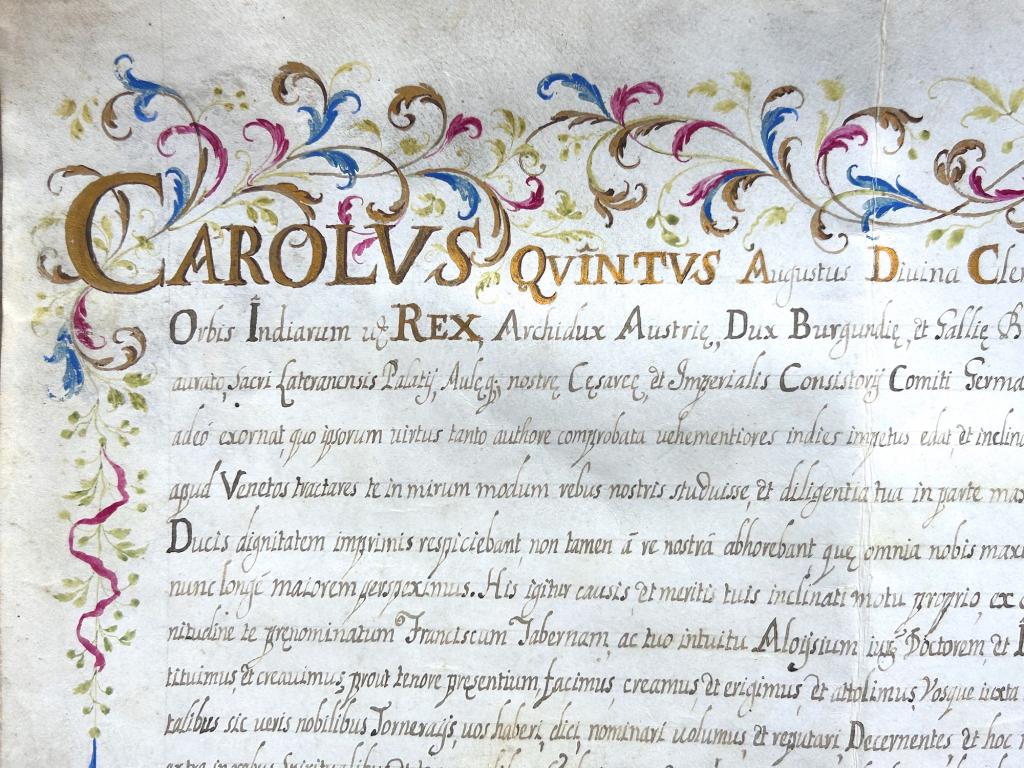 CAROLVS QVÎNTVS Augustus Diuina Cle
Orbis Îndiarum REX, Archidux Austrię, Dux Burgundię, et Gallię B
aurato, Sacri Lateranensis Palatij, Aulęq; nostrę Cęsareę, et Imperialis Consistorij Comiti Germa
adeó exornat, quo ipsorum uirtus tanto authore comprobata uehementiores indies impetus edat, et inclin
apud Venetos tractares te in mirum modum rebus nostris studuisse, et diligentia tua in parte max
Ducis dignitatem imprimis respiciebant, non tamen ā re nostrā abhorebant, quę omnia nobis max
nunc longé maiorem perspeximus. His igitur causis, et meritis tuis inclinati motu proprio, ex
nitudine te pręnominatum Franciscum Tabernam, ac tuo intuitu Aloÿsium Doctorem, et
tituimus, et creauimus, prout tenore pręsentium, facimus, creamus, et erigimus, et attolimus, Vosque iuxta
talibus sic ueris nobilibus Torneraijs, uos haberi, dici, nominari uolumus, et reputari, Decernentes et hoc